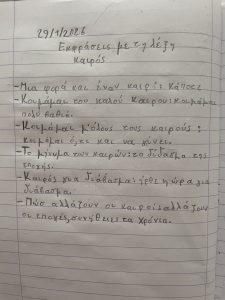 29/1/2026
Εκφράσεις με τη λέξη
καιρός
-Μια φορά και έναν καιρό: κάποτε
-Κοιμάμαι του καλού καιρου: κοιμάμαι
πολύ βαθιά.
-Κοιμάμαι μ'όλους τους καιρούς:
κοιμάμαι ό,τι και να γίνει.
-Το μήνυμα των καιρών: το δίδαγμα της
εποχής.
-Καιρός για διάβασμα: ήρθε η ώρα για
διάβασμα.
-Πώς αλλάζουν οι καιροί: αλλάζουν
οι εποχές, συνήθειες τα χρόνια.